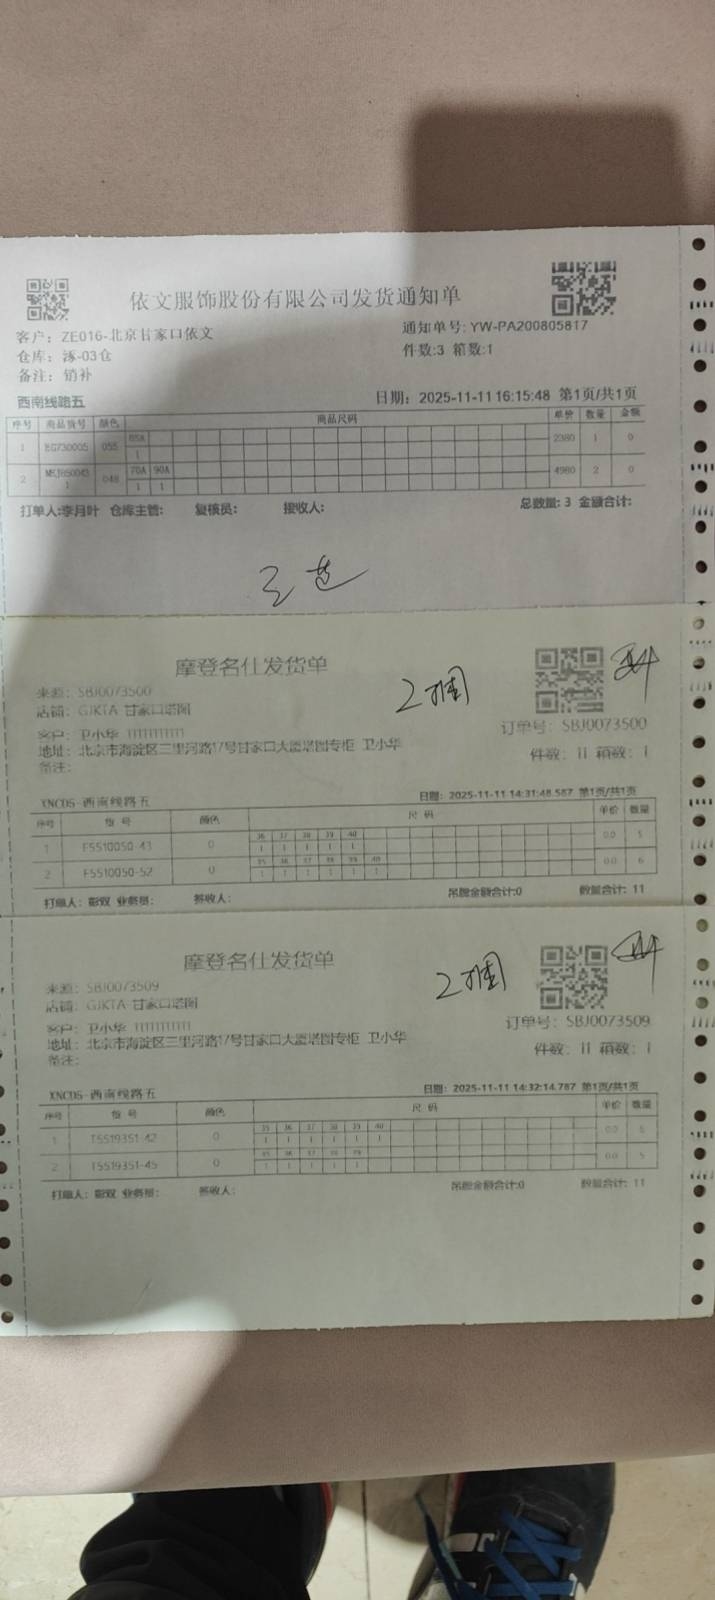 依文服饰股份有限公司发货通知单
客户：ZE016-北京甘家口依文
通知单号：YW-PA200805817
仓库：涿-03仓
件数:3 箱数:1
备注：销补
西南线路五 日期：2025-11-11 16:15:48 第1页/共1页
序号 商品货号 颜色 商品尺码 单价 数量 金额
85A
1 EG730005 055 1 2380 1 0
70A 90A
2 048 1 1 4980 2 0
打单人:李月叶 仓库主管: 复核员: 接收人: 总数量: 3 金额合计:
摩登名仕发货单
2捆
来源：SBJ0073500
店铺：GJKTA-甘家口塔图
订单号：SBJ0073500
客户：卫小华 11111111111
地址：北京市海淀区三里河路17号甘家口大厦塔图专柜 卫小华
件数：11 箱数：1
备注：
XNCDS-西南线路五 日期：2025-11-11 14:31:48.587 第1页/共1页
序号 货 号 颜色 尺 码 单价 数量
36 37 38 39 40
1 F5510050-43 0 1 1 1 1 1 0.0 5
35 36 37 38 39 40
2 F5510050-52 0 1 1 1 1 1 1 0.0 6
打单人：彭双 业务员： 签收人： 吊牌金额合计:0 数量合计: 11
摩登名仕发货单
2捆
来源：SBJ0073509
店铺：GJKTA-甘家口塔图
订单号：SBJ0073509
客户：卫小华 11111111111
地址：北京市海淀区三里河路17号甘家口大厦塔图专柜 卫小华
件数：11 箱数：1
备注：
XNCDS-西南线路五 日期：2025-11-11 14:32:14.787 第1页/共1页
序号 货 号 颜色 尺 码 单价 数量
35 36 37 38 39 40
1 T5519351-42 0 1 1 1 1 1 1 0.0 6
35 36 37 38 39
2 T5519351-45 0 1 1 1 1 1 0.0 5
打单人：彭双 业务员： 签收人： 吊牌金额合计:0 数量合计: 11